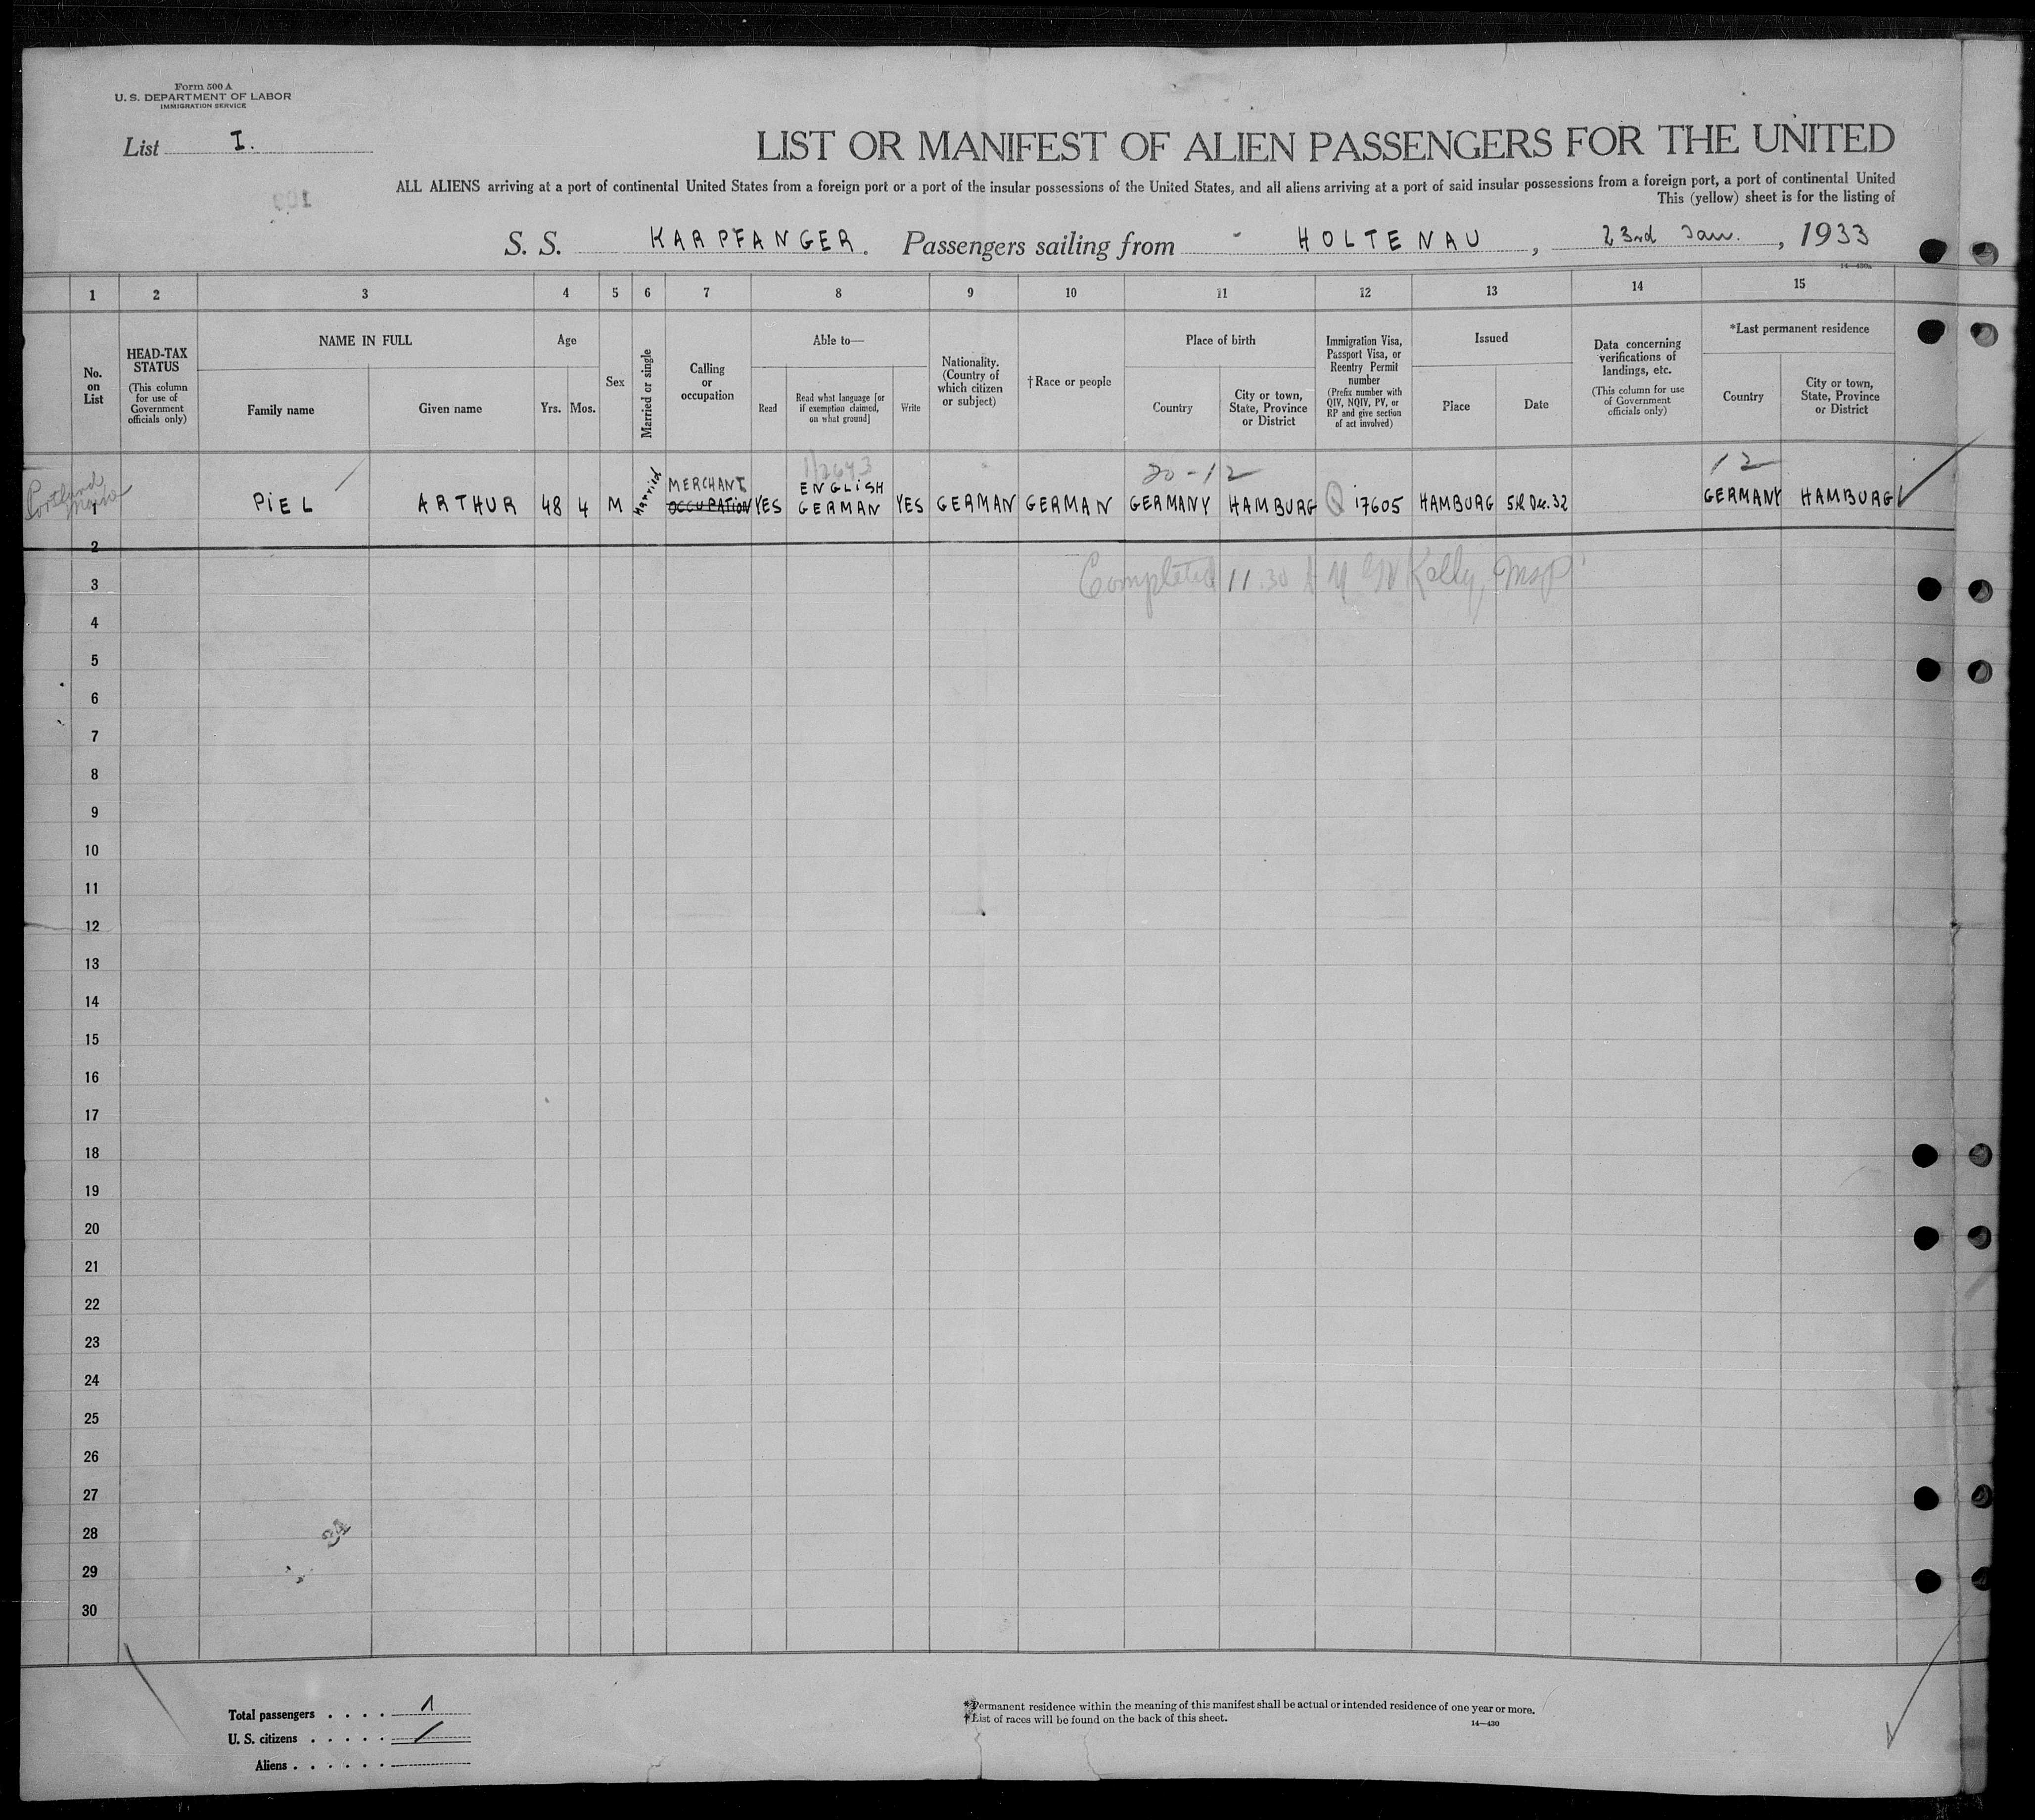 Form 500 A
U. S. DEPARTMENT OF LABOR
IMMIGRATION SERVICE
List I.
LIST OR MANIFEST OF ALIEN PASSENGERS FOR THE UNITED
ALL ALIENS arriving at a port of continental United States from a foreign port or a port of the insular possessions of the United States, and all aliens arriving at a port of said insular possessions from a foreign port, a port of continental United
This (yellow) sheet is for the listing of
S. S. KARPFANGER. Passengers sailing from HOLTENAU, 23rd Jan., 1933
14—430a
1 2 3 4 5 6 7 8 9 10 11 12 13 14 15
No. on List
HEAD-TAX STATUS
(This column for use of Government officials only)
NAME IN FULL
Family name
Given name
Age
Yrs. Mos.
Sex
Married or single
Calling or occupation
Able to—
Read
Read what language [or if exemption claimed, on what ground]
Write
Nationality. (Country of which citizen or subject)
†Race or people
Place of birth
Country
City or town, State, Province or District
Immigration Visa, Passport Visa, or Reentry Permit number
(Prefix number with QIV, NQIV, PV, or RP and give section of act involved)
Issued
Place
Date
Data concerning verifications of landings, etc.
(This column for use of Government officials only)
*Last permanent residence
Country
City or town, State, Province or District
Portland
20-12
12
MERCHANT ENGLISH
PIEL ARTHUR 48 4 M Married OCCUPATION YES GERMAN YES GERMAN GERMAN GERMANY HAMBURG Q 17605 HAMBURG 5th Dec. 32 GERMANY HAMBURG
2
Completed 11.30 A M Kelly
3
4
5
6
7
8
9
10
11
12
13
14
15
16
17
18
19
20
21
22
23
24
25
26
27
28
29
30
Total passengers . . . . 1
U. S. citizens . . . . . /
Aliens . . . . . .
*Permanent residence within the meaning of this manifest shall be actual or intended residence of one year or more.
†List of races will be found on the back of this sheet.
14—430